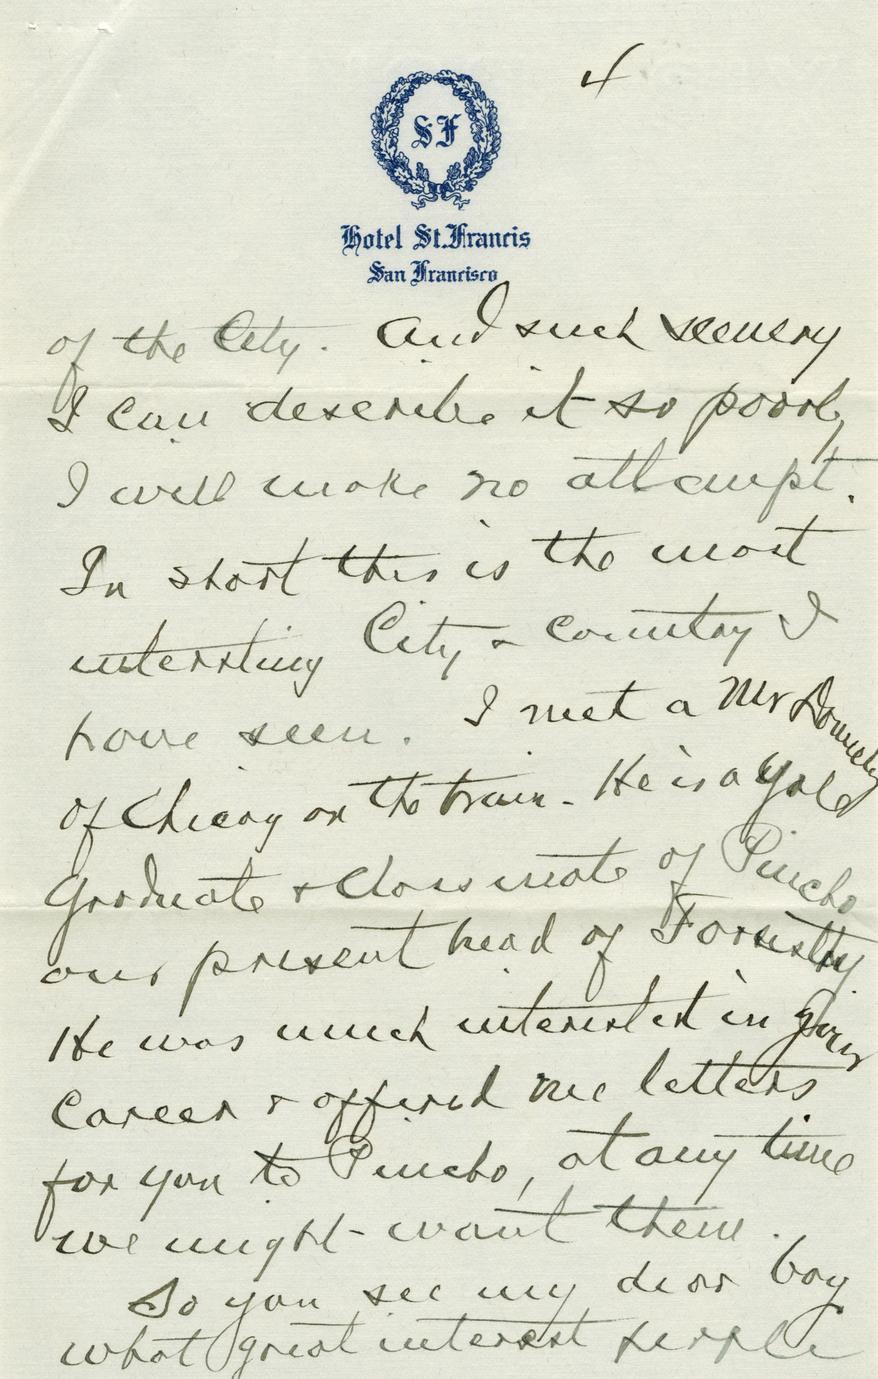 4
SF
Hotel St. Francis
San Francisco
of the City. And such scenery
I can describe it so poorly
I will make no attempt.
In short this is the most
interesting City & country I
have seen. I met a Mr Donnelly
of Chicag on the train - He is a Yale
Graduate & Classmate of Pincho
our present head of Forestry
He was much interested in your
career & offered me letters
for you to Pincho, at any time
we might - want them.
So you see my dear boy
what great interest people